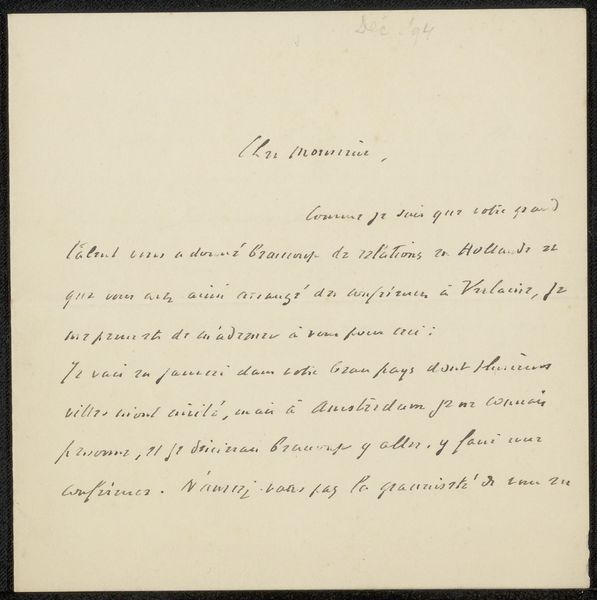 Déc. '94
Cher Monsieur,
Comme je sais que votre grand
talent vous a donné beaucoup de relations en Hollande et
que vous avez ainsi arrangé des conférences à Verlaine, je
me permets de m'adresser à vous pour ceci :
Je vais en janvier dans votre beau pays dont plusieurs
villes m'ont invité, mais à Amsterdam je ne connais
personne, et je désirerais beaucoup y aller, y faire une
conférence. N'auriez-vous pas la gracieuseté de vous en